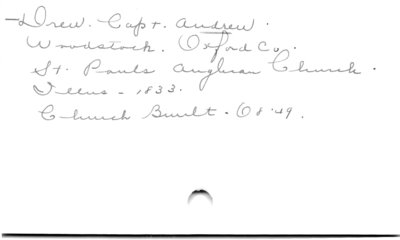 Drew. Capt. Andrew.
Woodstock. Oxford Co.
St. Pauls Anglican Church.
- 1833.
Church Built -